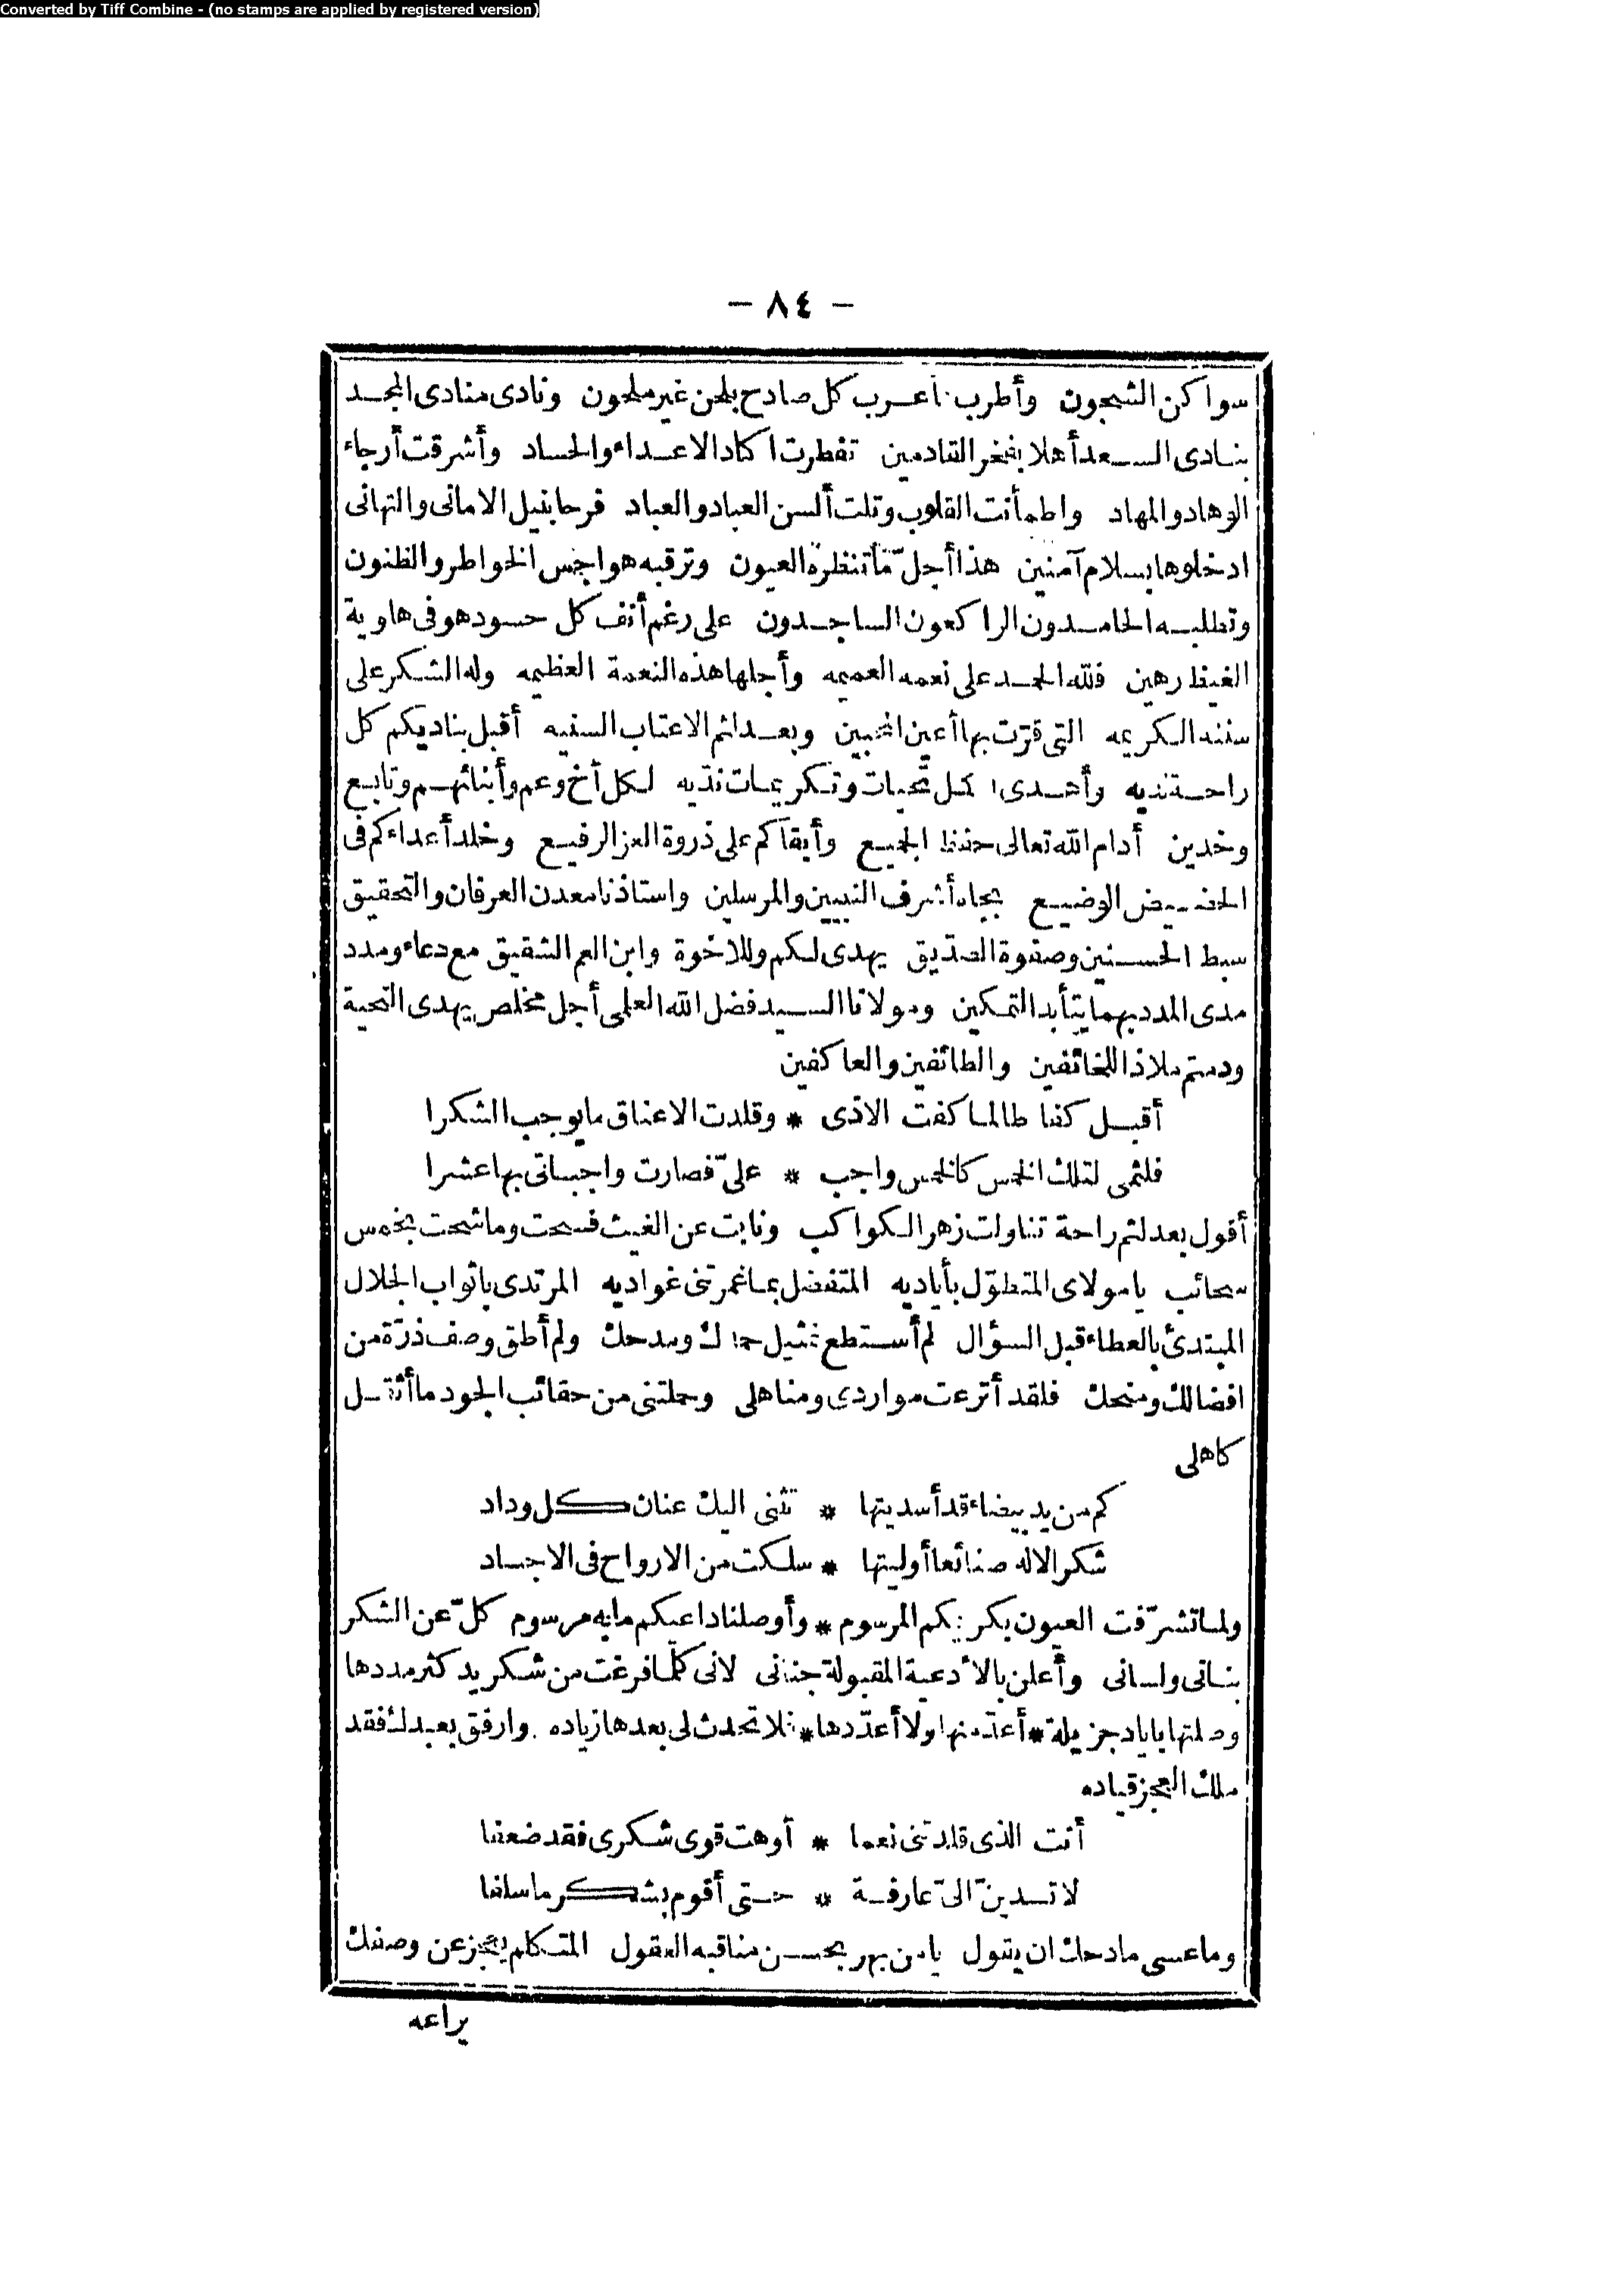 Converted by Tiff Combine - (no stamps are applied by registered version)
— ٨٤ —
سواكن الشجون وأطرب بأعرب كل صادح بلحن غير ملحون ونادى منادى المجد
بنادى السعد أهلا بفخر القادمين تفطرت اكباد الاعداء والحساد وأشرقت أرجاء
الوهاد والمهاد واطمأنت القلوب وتلت ألسن العباد والعباد فرحا بنيل الامانى والتهانى
ادخلوها بسلام آمنين هذا أجلّ ما تنظره العيون وترقبه هواجس الخواطر والظنون
وتطلبه الحامدون الراكعون الساجدون على رغم أنف كل حسود هو فى هاوية
الغيظ رهين فلله الحمد على نعمه العميمه وأجلها هذه النعمة العظيمه وله الشكر على
سننه الكريمه التى قرّت بها أعين المحبين وبعد لثم الاعتاب السنيه أقبل بناديكم كل
راحة نديه وأهدى اكمل تحيات وتكريمات نديه لكل أخ وعم وأبنائهم وتابع
وخدين أدام الله تعالى حفظ الجميع وأبقاكم على ذروة العز الرفيع وخلد أعداءكم فى
الحضيض الوضيع بجاه أشرف النبيين والمرسلين واستاذنا معدن العرفان والتحقيق
سبط الحسنين وصفوة الصدّيق يهدى لكم وللاخوة وابن العم الشقيق مع دعاء ومدد
مدى المدد بهما يتأبد التمكين ومولانا السيد فضل الله العلمى أجل مخلص يهدى التحية
ودمتم ملاذا للخائفين والطائفين والعاكفين
أقبل كفا طالما كفت الاذى * وقلدت الاعناق ما يوجب الشكرا
فلثمى لتلك الخمس كالخمس واجب * علىّ فصارت واجباتى بها عشرا
أقول بعد لثم راحة تناولت زهر الكواكب ونابت عن الغيث فسحت وما شحت بخمس
سحائب يا مولاى المتطوّل بأياديه المتفضل بما غمرتنى غواديه المرتدى باثواب الجلال
المبتدئ بالعطاء قبل السؤال لم أستطع تمثيل حمدك ومدحك ولم أطق وصف ذرّة من
افضالك ومنحك فلقد أترعت مواردى ومناهلى وحملتنى من حقائب الجود ما أثقل
كاهلى
كم من يد بيضاء قد أسديتها * تثنى اليك عنان كل وداد
شكر الاله صنائعا أوليتها * سلكت من الارواح فى الاجساد
ولما تشرّفت العيون بكريكم المرسوم * وأوصلنا داعيكم ما به مرسوم كلّ عن الشكر
بنانى ولسانى وأعلن بالأدعية المقبولة جنانى لانى كلما فرغت من شكر يد كثر مددها
وصلتها باياد جزيلة * أعدّ منها ولا أعدّدها * فلا تحدث لى بعدها زياده وارفق بعبدك فقد
ملك العجز قياده
أنت الذى قلدتنى نعما * أوهت قوى شكرى فقد ضعفا
لا تسدينّ الىّ عارفة * حتى أقوم بشكر ما سلفا
وما عسى مادحك ان يقول يا من بهر بحسن مناقبه العقول المتكلم يعجز عن وصفك
يراعه